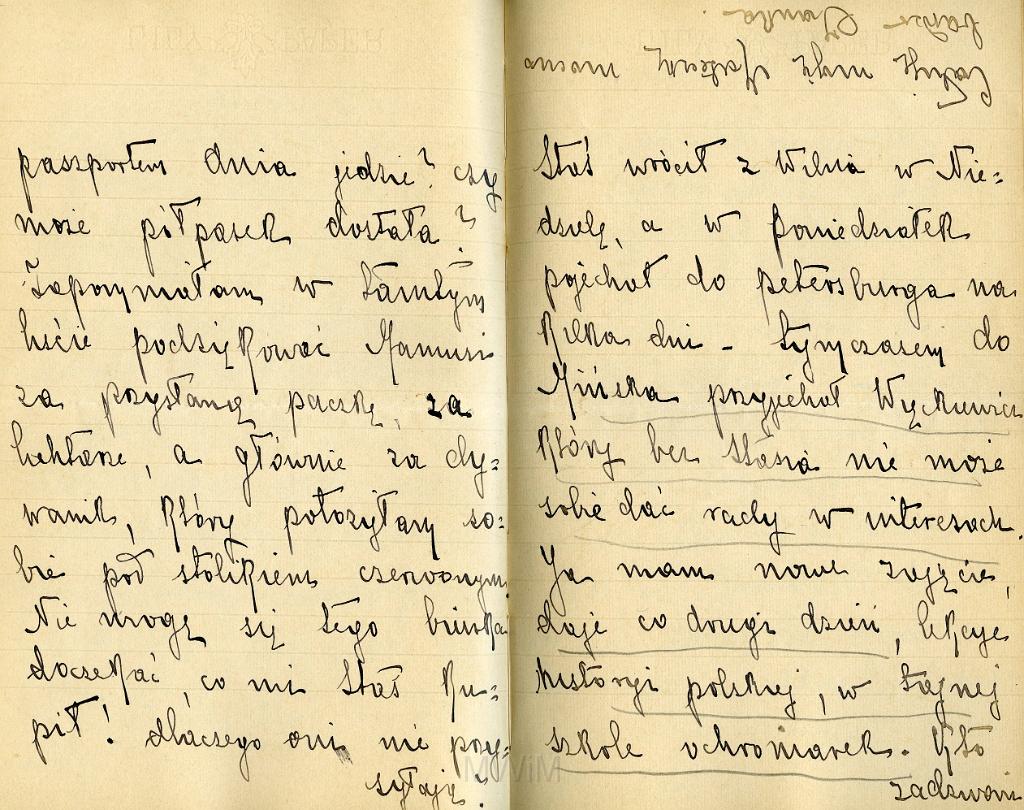 paszportem Ania jedzie? czy
może półpasek dostała?
Zapomniałam w tamtym
liście podziękować Mamusi
za przysłaną paczkę, za
lichtarze, a głównie za dy=
wanik, który położyłam so=
bie pod stolikiem czerwonym.
Nie mogę się tego biurka
doczekać, co mi Staś ku=
pił! dlaczego oni nie przy=
syłają?
Całuję moją Mateczkę mocno
bardzo Hanka.
Staś wrócił z Wilna w Nie=
dzielę, a w poniedziałek
pojechał do petersburga na
kilka dni – tymczasem do
Mińska przyjechał
który bez Stasia nie może
sobie dać rady w interesach.
Ja mam nowe zajęcie,
daję co drugi dzień, lekcye
historyi polskiej, w tajnej
szkole ochroniarek. Kto
zadzwoni
MWiM